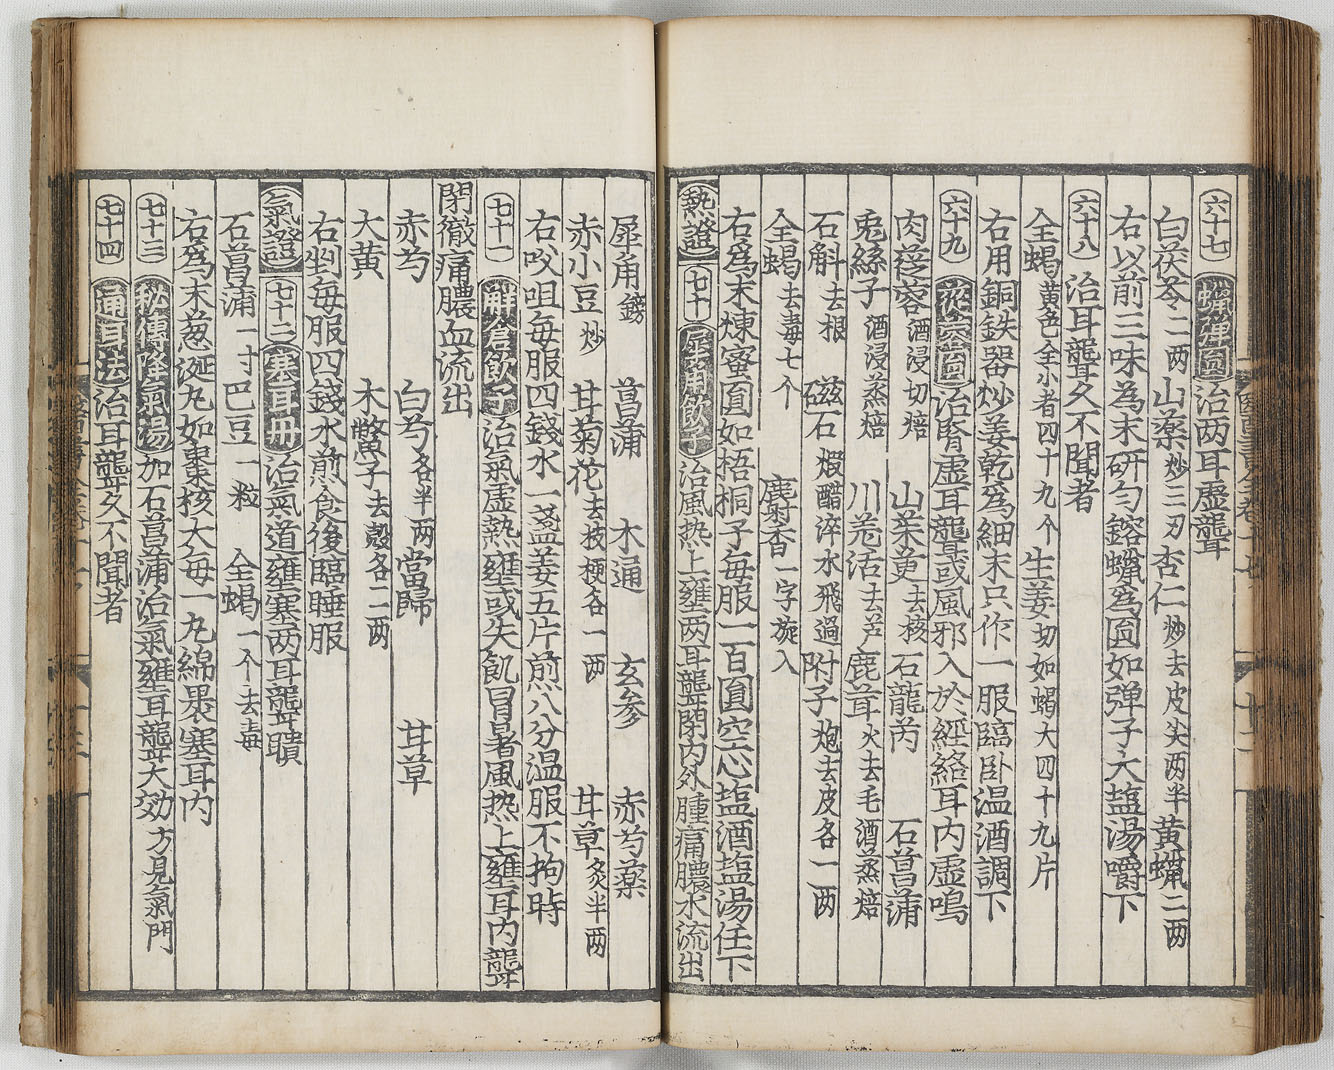 六十七 蠟弾圓 治两耳虛聾
白茯苓二两 山藥炒三刄 杏仁炒去皮尖两半 黄蠟二两
右以前三味為末研勻鎔蠟爲圓如弾子大塩湯嚼下
六十八 治耳聾久不聞者
全蝎黄色全小者四十九个 生姜切如蝎大四十九片
右用銅鉄器炒姜乾爲細末只作一服臨卧温酒調下
六十九 蓯蓉圓 治腎虛耳聾或風邪入於經絡耳内虛鳴
肉蓯蓉酒浸切焙 山茱萸去核 石龍芮 石菖蒲
兎絲子酒浸蒸焙 川羗活去芦 鹿茸火去毛酒蒸焙
石斛去根 磁石煅醋淬水飛過 附子炮去皮各一两
全蝎去毒七个 麝香一字旋入
右爲末煉蜜圓如梧桐子每服一百圓空心塩酒塩湯任下
熱證 七十 犀角飲子 治風热上壅两耳聾閉内外腫痛膿水流出
犀角鎊 菖蒲 木通 玄參 赤芍藥
赤小豆炒 甘菊花去枝梗各一两 甘草炙半两
右㕮咀每服四錢水一盞姜五片煎八分温服不拘時
七十一 解倉飲子 治氣虛熱壅或失飢冒暑風热上壅耳内聾
閉徹痛膿血流出
赤芍 白芍各半两 當歸 甘草
大黄 木鱉子去殼各一两
右剉每服四錢水煎食後臨睡服
氣證 七十二 塞耳冊 治氣道壅塞两耳聾聵
石菖蒲一寸 巴豆一粒 全蝎一个去毒
右爲末葱涎丸如棗核大每一丸綿裹塞耳内
七十三 秘傳降氣湯 加石菖蒲治氣壅耳聾大効方見氣門
七十四 通耳法 治耳聾久不聞者